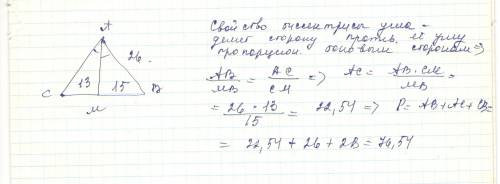 A
26.
13
15
C
M
B
Свойство биссектрисы угла -
делит сторону против. её углу
пропорцион. боковым сторонам ⇒
AB/MB = AC/CM ⇒ AC = AB·CM/MB =
= 26·13/15 = 22,54 ⇒ P = AB+AC+CB=
= 22,54 + 26 + 28 = 76,54